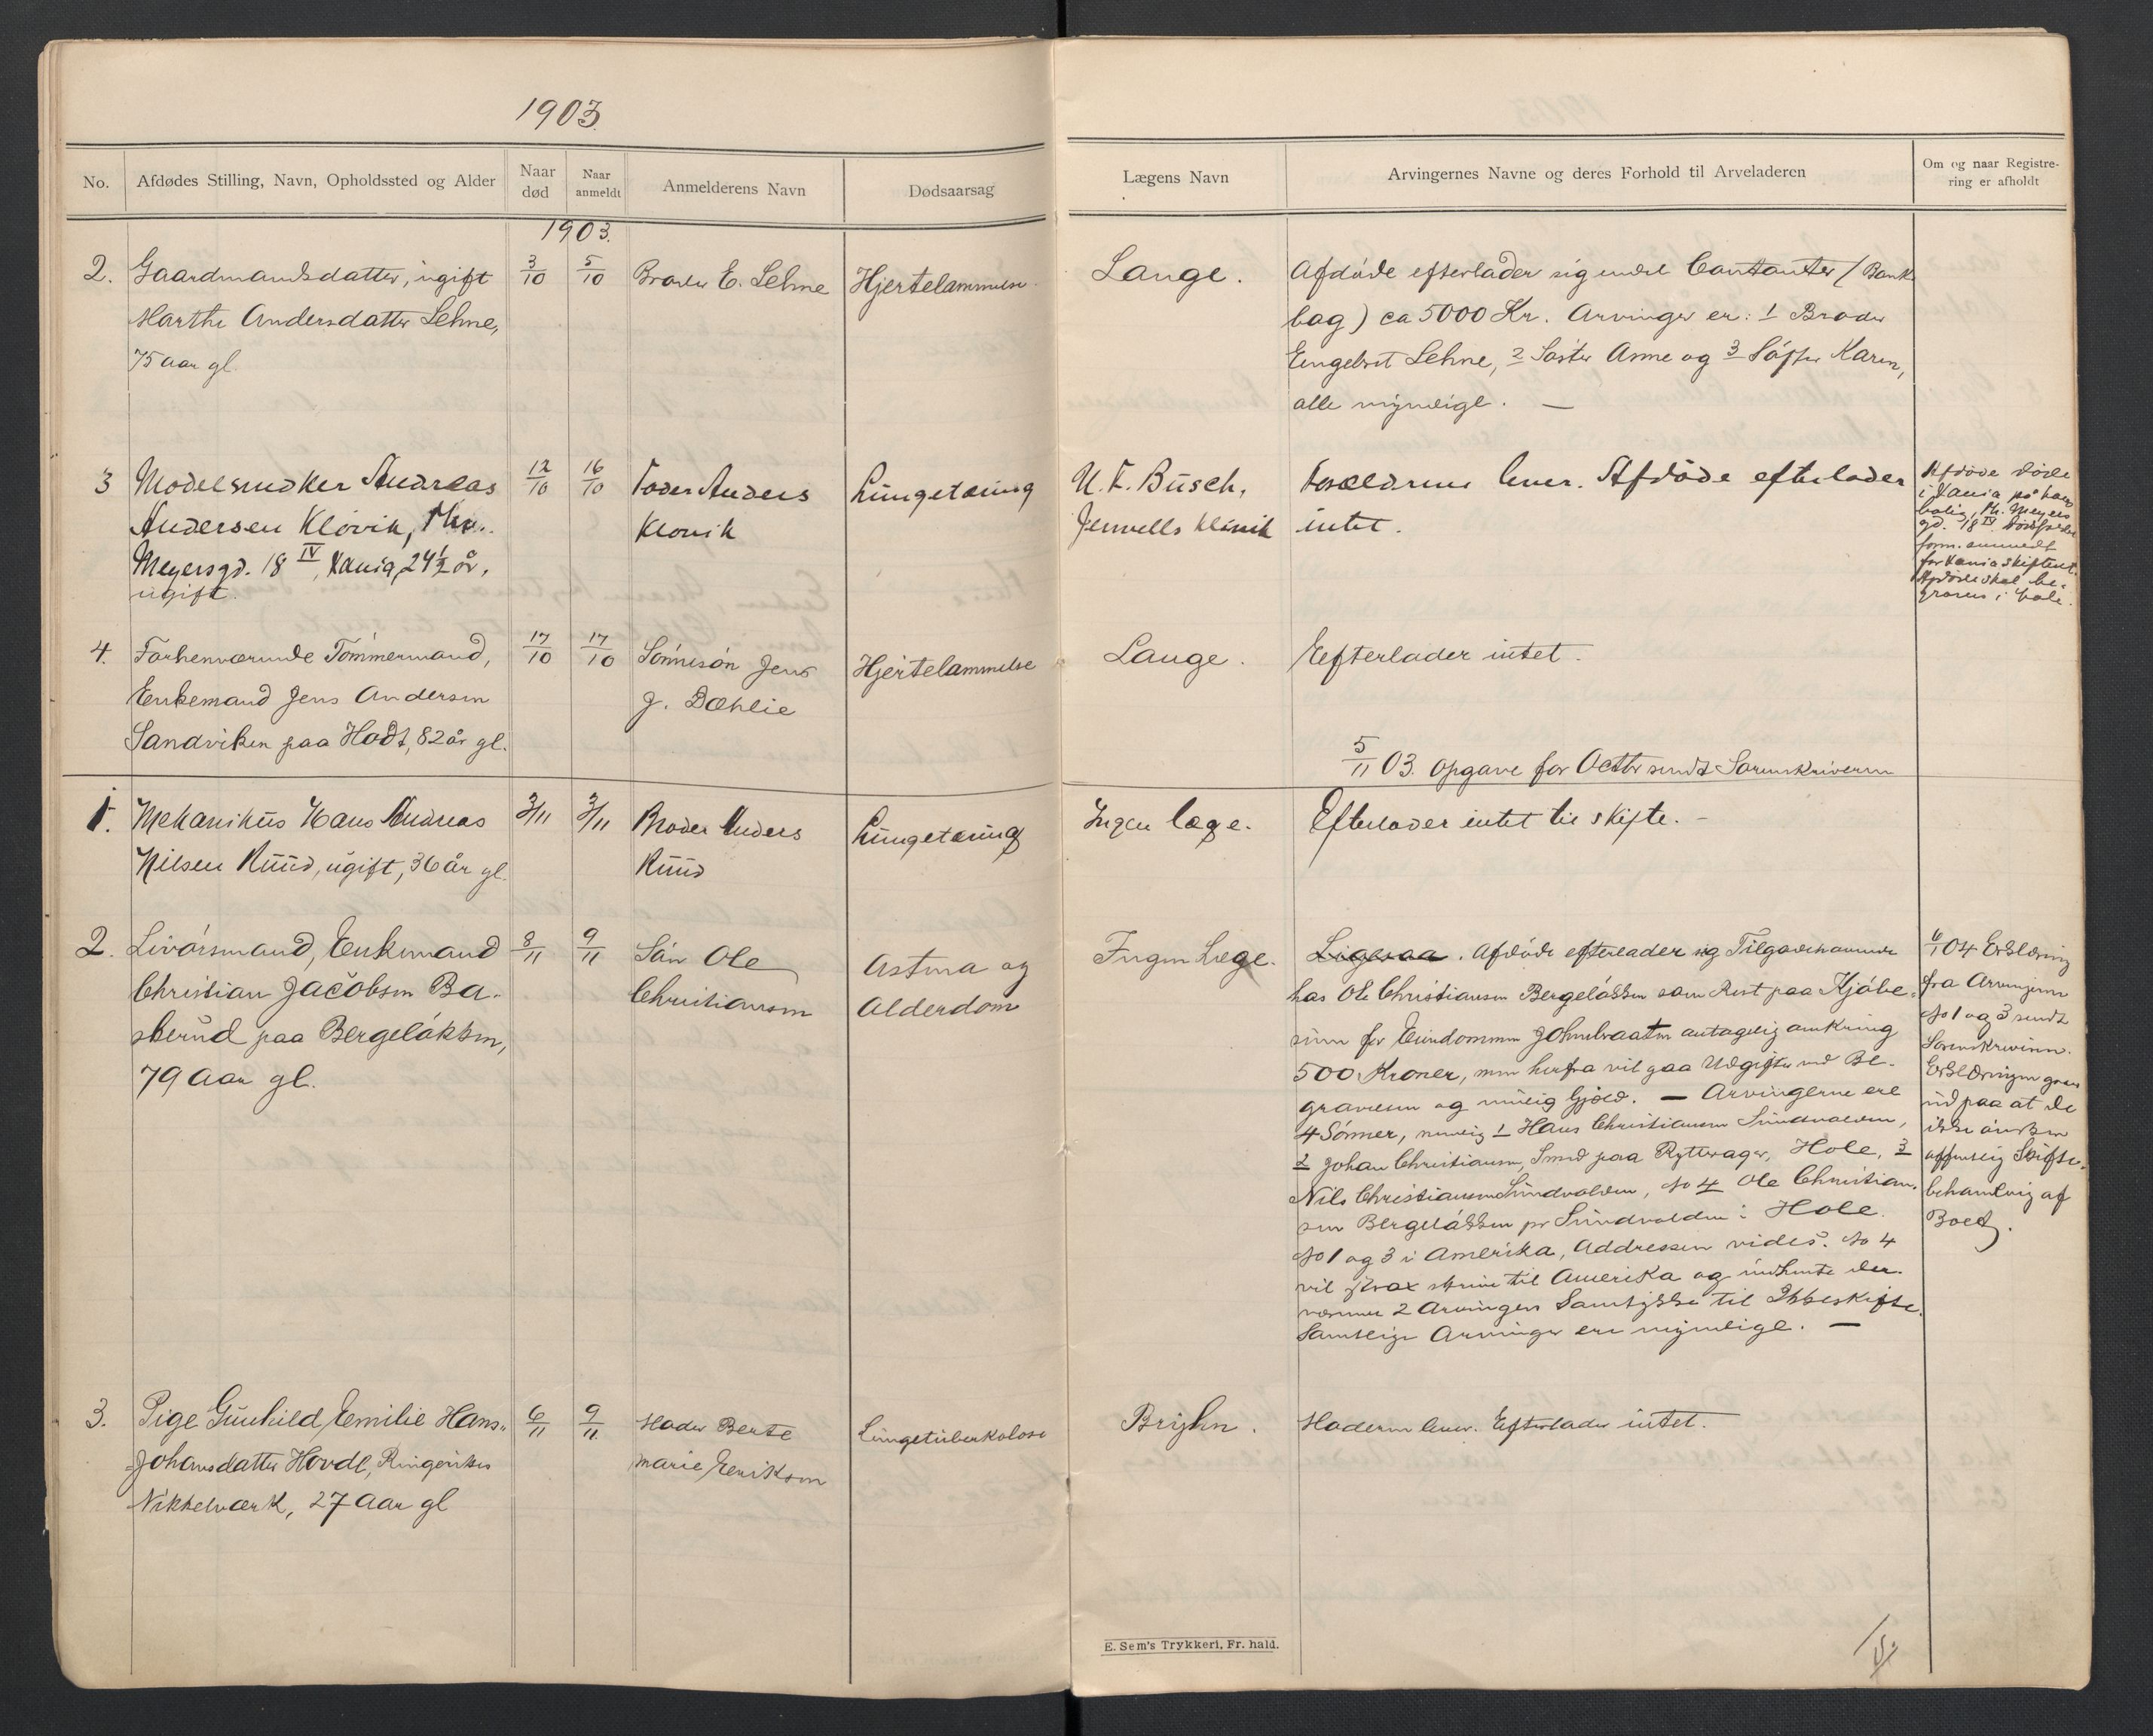 1903
No.
Afdødes Stilling, Navn, Opholdssted og Alder
Naar død
Naar anmeldt
Anmelderens Navn
Dødsaarsag
Lægens Navn
Arvingernes Navne og deres Forhold til Arveladeren
Om og naar Registre-
ring er afholdt
1903.
2.
Gaardmandsdatter, ugift
Marthe Andersdatter Lehne,
75 aar gl.
3/10
5/10
Broder E. Lehne
Hjertelammelse
Lange.
Afdøde efterlader sig Contanter (Bank
bog) ca 5000 Kr. Arvinger er: 1 Broder
Engebret Lehne, 2 Søster Anne og 3 Søster Karen,
alle myndige. —
3
Modelsnedker Andreas
Andersen Kløvik, Thv.
Meyersgd. 18 IV, Kania, 24½ år,
ugift.
12/10
16/10
Fader Anders
Klovik
Lungetæring
U. F. Busch,
klinik
Forældrene lever. Afdøde efterlader
intet.
Afdøde døde
i Kania på hans
bolig, Th. Meyers
gd. 18 IV
form. anmeldt
for Kania skifteret.
Afdøde skal be-
graves i Hole.
4.
Forhenværende Tømmermand,
Enkemand Jens Andersen
Sandviken paa Hodt, 82 år gl.
17/10
17/10
Sønnesøn Jens
J. Dæhlie
Hjertelammelse
Lange.
Efterlader intet.
5/11 03. Opgave for Octbr sendt Sorenskriveren
1.
Mekanikus Hans Andreas
Nilsen Ruud, ugift, 36 år gl.
3/11
3/11
Broder Anders
Ruud
Lungetæring
Ingen læge.
Efterlader intet til skifte. —
2.
Livørsmand, Enkemand
Christian Jacobsen Ba-
sberud paa Bergeløkken,
79 Aar gl.
8/11
9/11
Søn Ole
Christiansen
Astma og
Alderdom
Ingen Læge.
Ligesaa. Afdøde efterlader sig Tilgodehavende
hos Ole Christiansen Bergeløkken som Rest paa Kjøbe-
sum for Eiendommen Johnsbraaten antagelig omkring
500 Kroner, men herfra vil gaa Udgifter ved Be-
gravelsen og mulig Gjæld. — Arvingerne ere
4 Sønner, nemlig 1 Hans Christiansen Sundvolden,
2 Johan Christiansen, Smed paa Rytterager, Hole, 3
Nils Christiansen Sundvolden, No 4 Ole Christian-
sen Bergeløkken pr Sundvolden i Hole.
No 1 og 3 i Amerika, Addressen vides. No 4
vil strax skrive til Amerika og indhente der-
værende 2 Arvingers Samtykke til Ikkeskifte.
Samtlige Arvinger ere myndige. —
6/1 04 Erklæring
fra Arvingerne
No 1 og 3 sendt
Sorenskriveren.
Erklæringen gaar
ud paa at de
ikke ønsker
offentlig Skifte-
behandling af
Boet.
3.
Pige Gunhild Emilie Hans-
Johansdatter Hovde, Ringerikes
Nikkelværk, 27 Aar gl
6/11
9/11
Moder Berte
Marie Eriksen
Lungetuberkolose
Bryhn.
Moderen lever. Efterlader intet.
E. Sem's Trykkeri, Fr. hald.